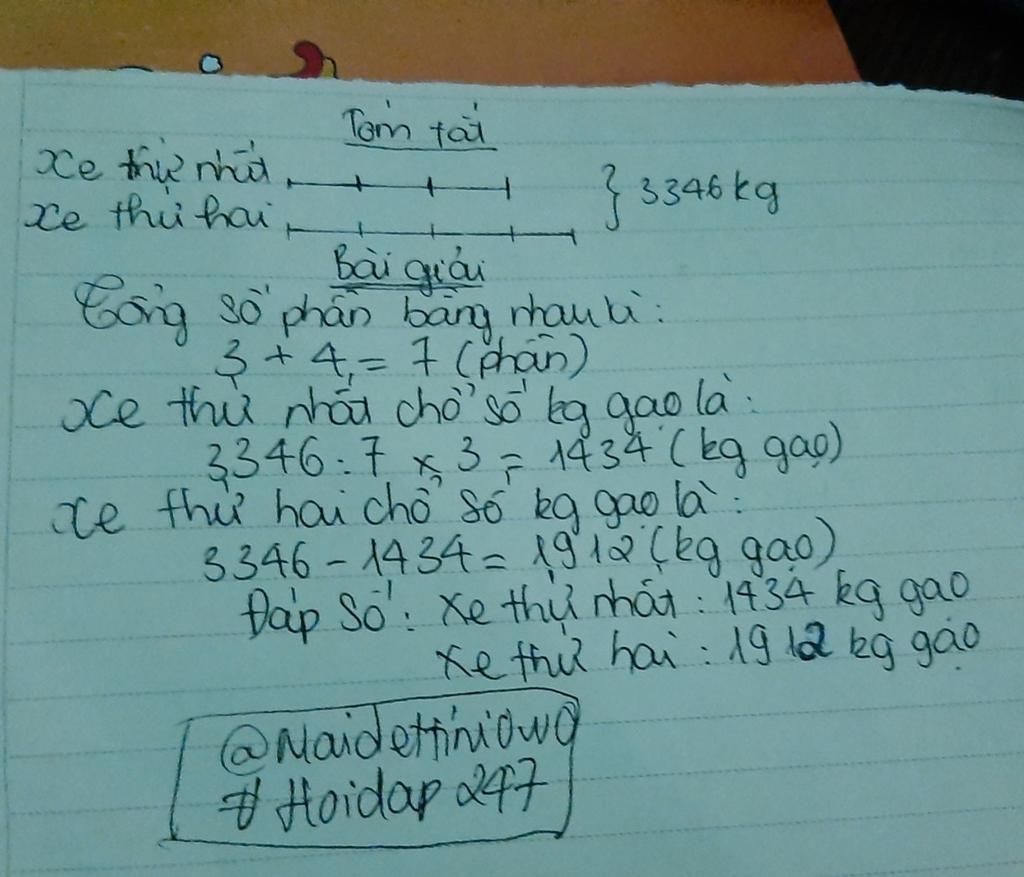 Tóm tắt
Xe thứ nhất
} 3346 kg
Xe thứ hai
Bài giải
Tổng số phần bằng nhau là:
3 + 4 = 7 (phần)
Xe thứ nhất chở số kg gạo là:
3346 : 7 x 3 = 1434 (kg gạo)
Xe thứ hai chở số kg gạo là:
3346 - 1434 = 1912 (kg gạo)
Đáp số: Xe thứ nhất : 1434 kg gạo
Xe thứ hai : 1912 kg gạo
@Naidettiniowo
# Hoidap 247